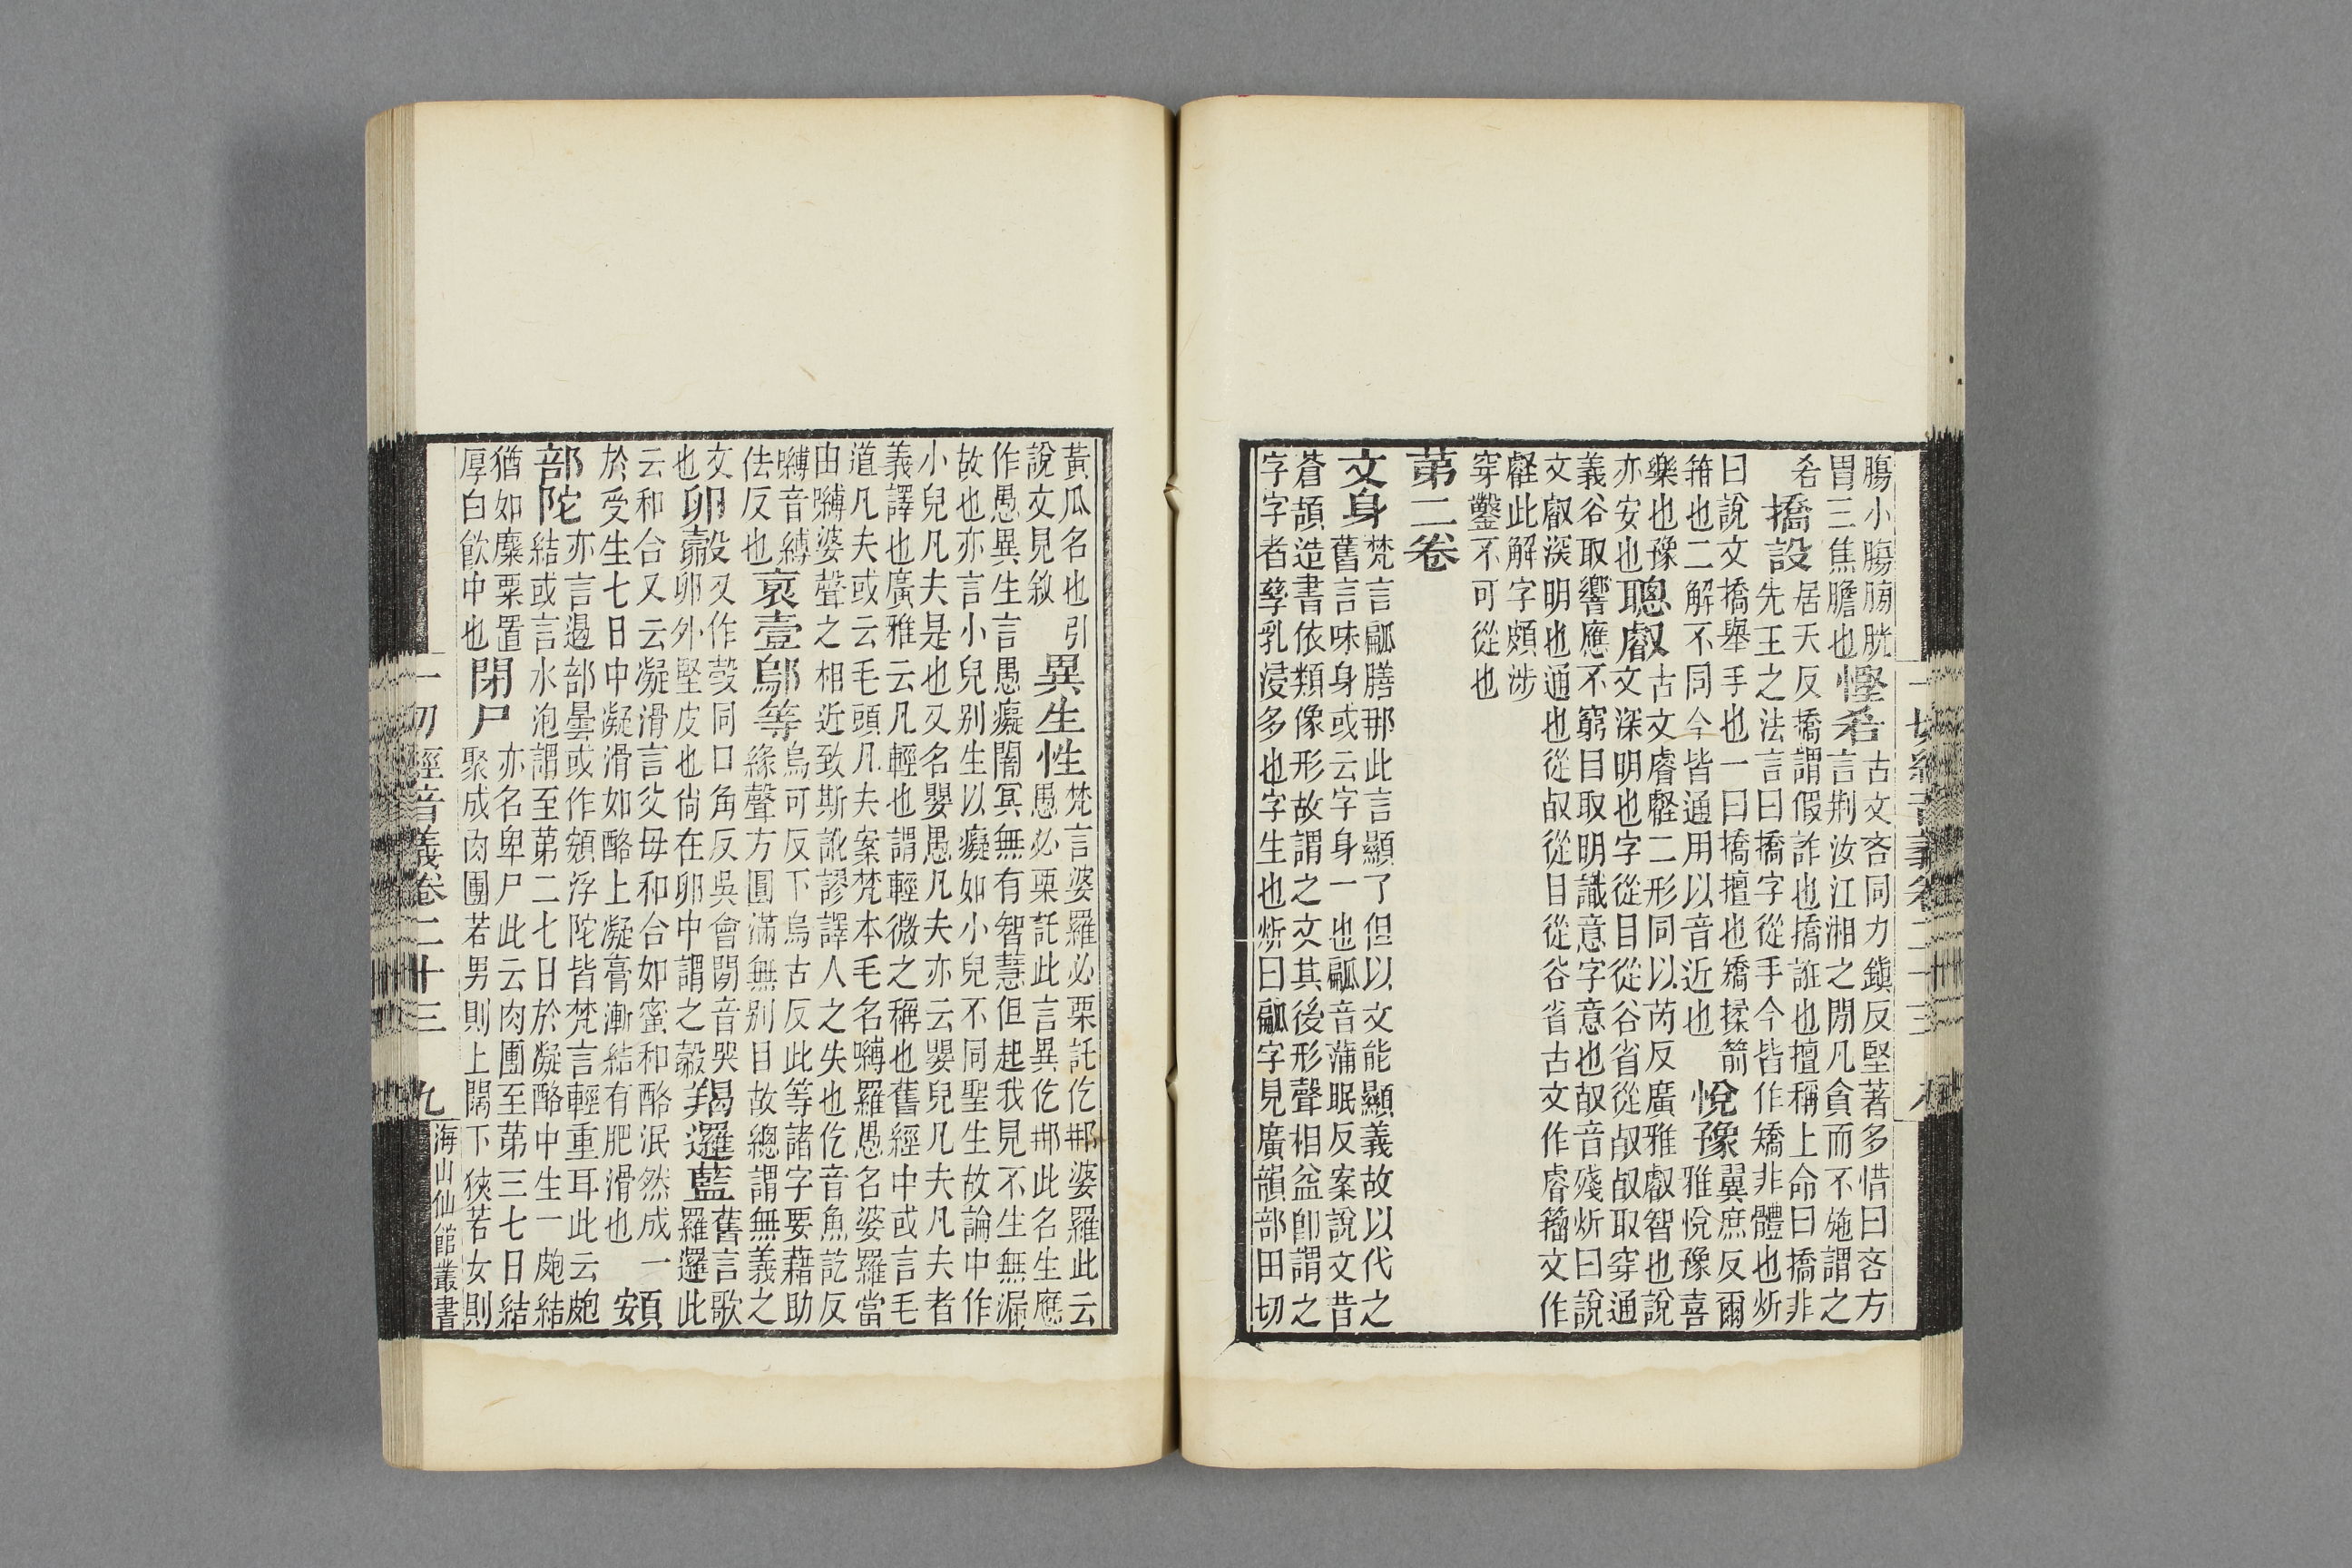 腸小腸膀胱
胃三焦膽也
慳吝
古文吝同力鎮反堅著多惜曰吝方
言荆汝江湘之閒凡貪而不施謂之
吝
撟設
居天反撟謂假詐也撟誑也擅稱上命曰撟非
先王之法言曰撟字從手今皆作矯非體也炘
曰說文撟舉手也一曰撟擅也矯揉箭
箝也二解不同今皆通用以音近也
悅豫
翼庶反爾
雅悅豫喜
樂也豫
亦安也
聰叡
古文睿壡二形同以芮反廣雅叡智也說
文深明也字從目從谷省從㕡㕡取穿通
義谷取響應不窮目取明識意字意也㕡音殘炘曰說
文叡深明也通也從㕡從目從谷省古文作睿籀文作
壡此解字頗涉
穿鑿不可從也
第二卷
文身
梵言㼐膳那此言顯了但以文能顯義故以代之
舊言味身或云字身一也㼐音蒲眠反案說文昔
蒼頡造書依類像形故謂之文其後形聲相益卽謂之
字字者孳乳浸多也字生也炘曰㼐字見廣韻部田切
黃瓜名也引
說文見敘
異生性
梵言婆羅必栗託仡䢴婆羅此云
愚必栗託此言異仡䢴此名生應
作愚異生言愚癡闇冥無有智慧但起我見不生無漏
故也亦言小兒别生以癡如小兒不同聖生故論中作
小兒凡夫是也又名嬰愚凡夫亦云嬰兒凡夫凡夫者
義譯也廣雅云凡輕也謂輕微之稱也舊經中或言毛
道凡夫或云毛頭凡夫案梵本毛名嚩羅愚名婆羅當
由嚩婆聲之相近致斯訛謬譯人之失也仡音魚訖反
嚩音縛
佉反也
裒壹鄔等
烏可反下烏古反此等諸字要藉助
緣聲方圓滿無别目故總謂無義之
文
也
卵㲉
又作㲉同口角反吳會閒音哭
卵外堅皮也尚在卵中謂之㲉
羯邏藍
舊言歌
羅邏此
云和合又云凝滑言父母和合如蜜和酪泯然成一
於受生七日中凝滑如酪上凝膏漸結有肥滑也
頞
部陀
亦言遏部曇或作頞浮陀皆梵言輕重耳此云皰
結或言水泡謂至第二七日於凝酪中生一皰結
猶如麋粟置
厚白飲中也
閉尸
亦名卑尸此云肉團至第三七日結
聚成肉團若男則上闊下狹若女則
一切經音義卷二十三
九
海山仙館叢書